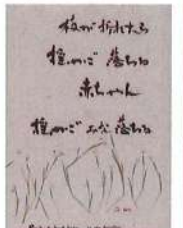 枝が折れたら
揺かご落ちる
赤ちゃん
揺かごみな落ちる